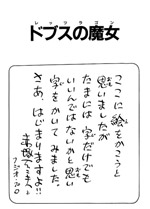 レッツラゴン
ドブスの魔女
ここに絵をかこうと
思いましたが
たまには字だけでも
いいんではないかと思い
字をかいてみました。
さあはじまりますよ!!
赤塚不二夫
フジオ・プロ